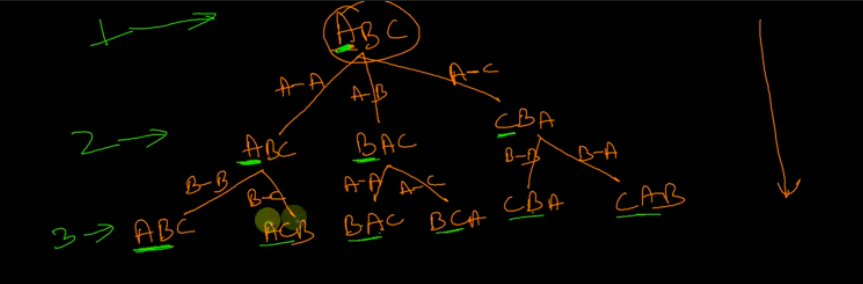 1 ABC
A-A A-B A-C
2 ABC BAC CBA
B-B B-C A-A A-C B-B B-A
3 ABC ACB BAC BCA CBA CAB